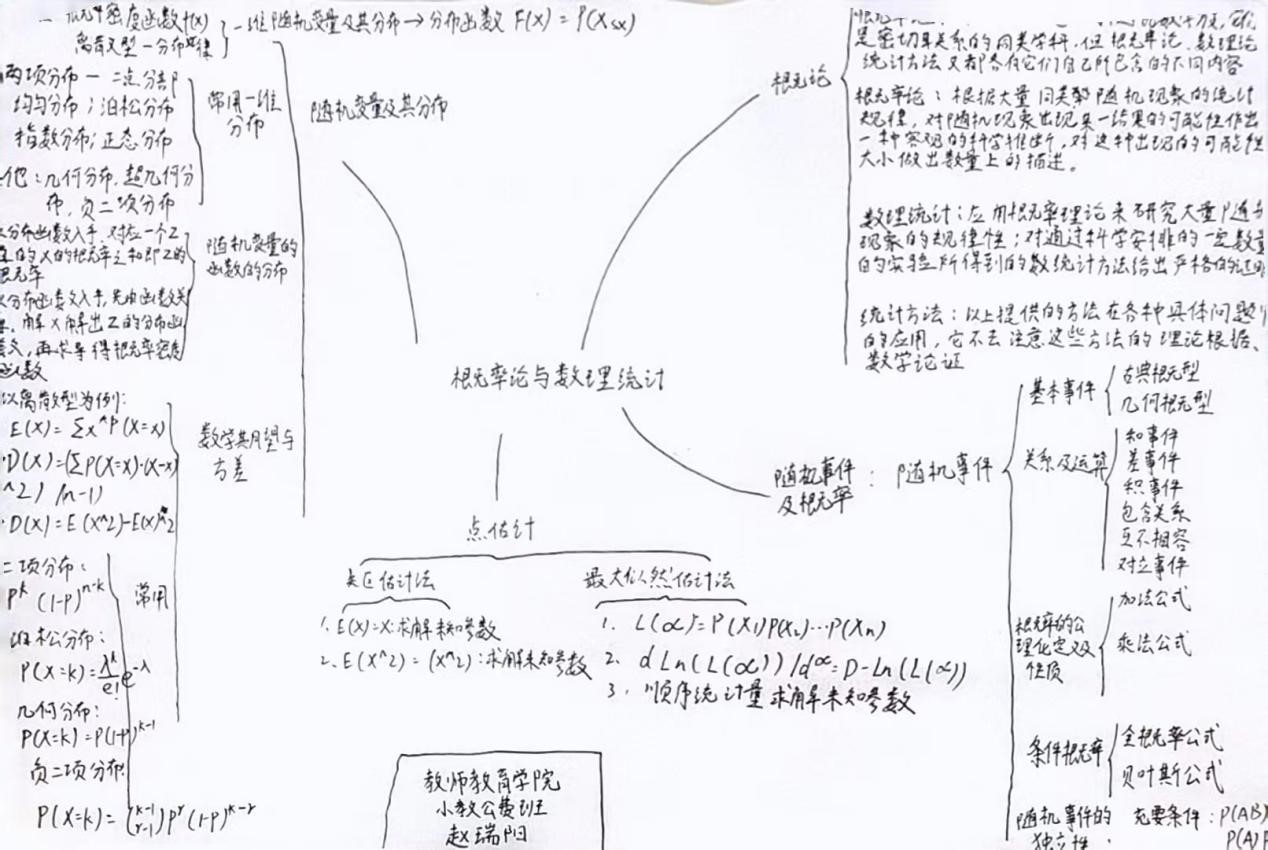 密度函数f(x)
离散型一分布律
一维随机变量及其分布→分布函数 F(X) = P(X≤x)
两项分布一 二点分部
均匀分布；泊松分布
指数分布；正态分布
他：几何分布，超几何分
布，负二项分布
常用一维
分布
随机变量及其分布
分布函数入手，对应一个Z
的X的概率之和即Z的
概率
分布函数入手，先由函数关
解X解出Z的分布函
数，再求导得概率密度
函数
随机变量的
函数的分布
以离散型为例:
E(X) = Σx^P(X=x)
D(X)=(ΣP(X=x)·(X-x)
^2) /(n-1)
D(X)=E(X^2)-E(X)^2
数学期望与
方差
二项分布:
P^k (1-P)^{n-k}
泊松分布:
P(X=k)=λ^k/e! e^-λ
几何分布:
P(X=k)=P(1-P)^{k-1}
负二项分布:
P(X=k)=(k-1 r-1)P^r(1-P)^{k-r}
常用
概率论与数理统计
概率论
是密切联系的同类学科，但概率论、数理论
统计方法又都各有它们自己所包含的不同内容
概率论：根据大量同类随机现象的统计
规律，对随机现象出现某一结果的可能性作出
一种客观的科学推断，对这种出现的可能性
大小做出数量上的描述。
数理统计：应用概率理论来研究大量随
现象的规律性；对通过科学安排的一定数量
的实验所得到的数统计方法给出严格的证明
统计方法：以上提供的方法在各种具体问题
的应用，它不去注意这些方法的理论根据、
数学论证
随机事件
及概率
： 随机事件
基本事件
古典概型
几何概型
关系及运算
和事件
差事件
积事件
包含关系
互不相容
对立事件
概率的公
理化定义及
性质
加法公式
乘法公式
条件概率
全概率公式
贝叶斯公式
随机事件的
独立性：
充要条件：P(AB)
P(A)P
点估计
矩估计法
1. E(X)=X:求解未知参数
2. E(X^2) = (X^2)：求解未知参数
最大似然估计法
1. L(α)=P(X1)P(X2)…P(Xn)
2. dLn(L(α))/dα=D-Ln(L(α))
3. 顺序统计量求解未知参数
教师教育学院
小教公费班
赵瑞阳